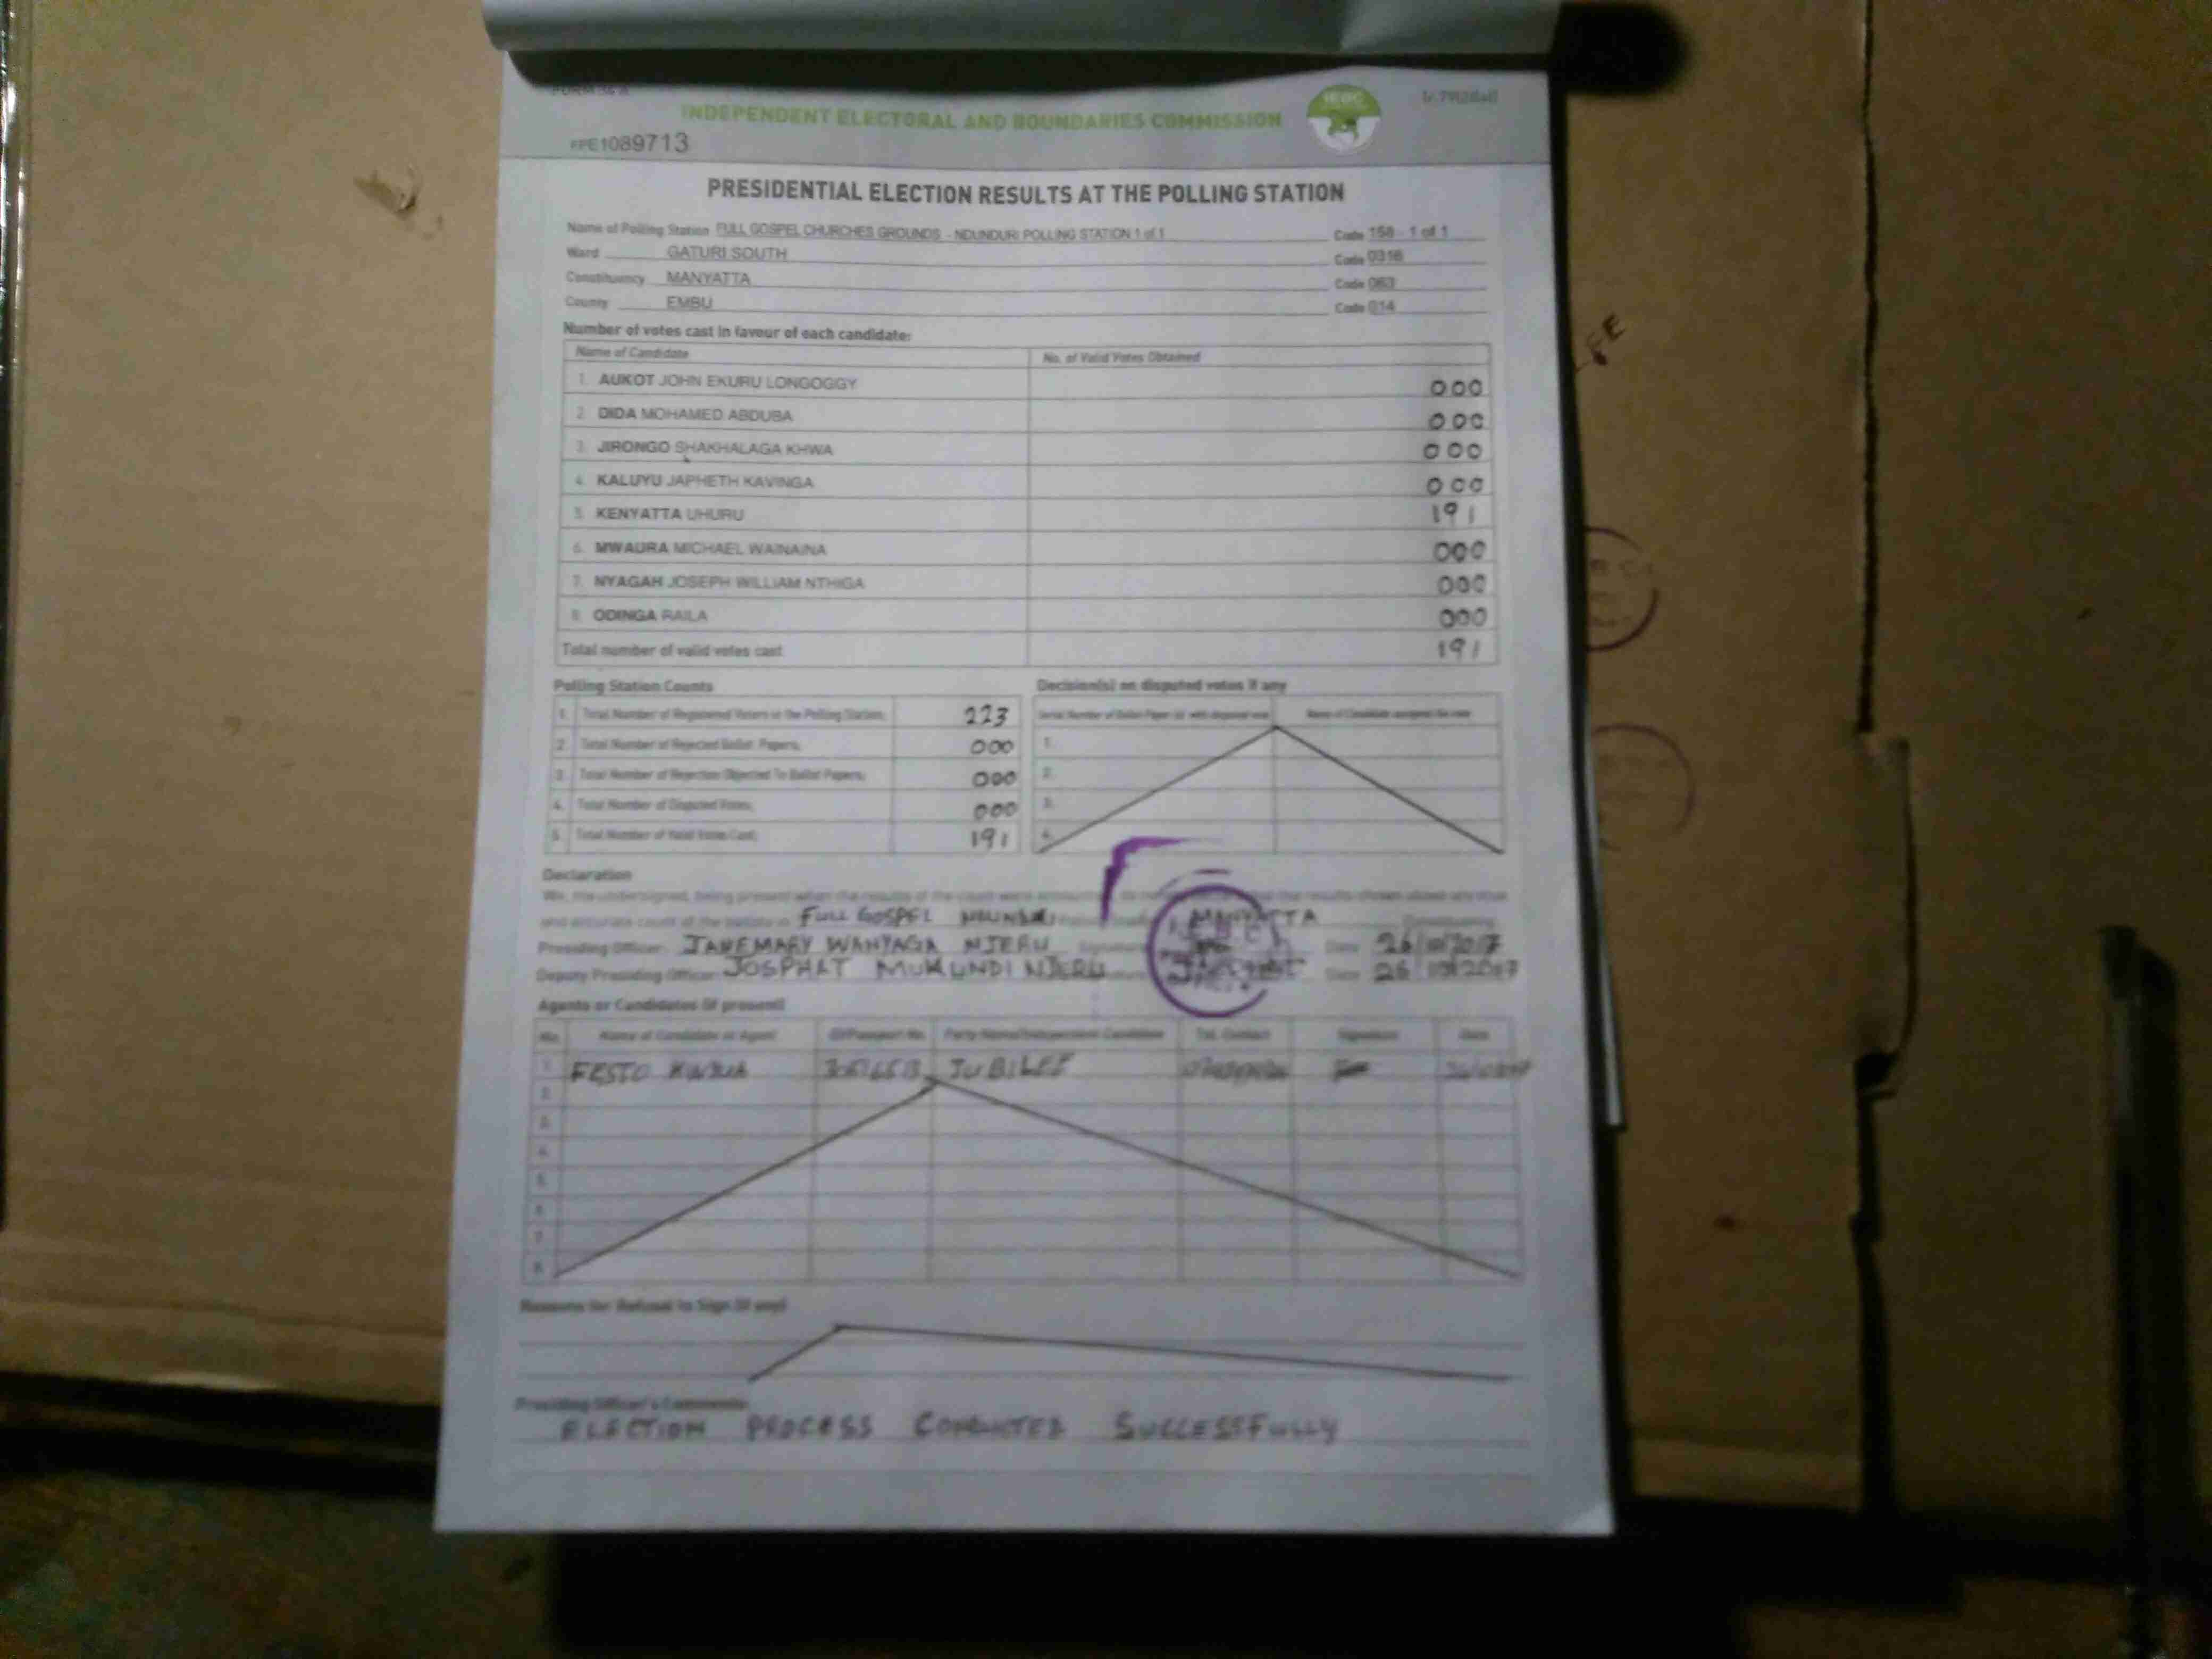 FORM 34 A
INDEPENDENT ELECTORAL AND BOUNDARIES COMMISSION
IEBC
FPE1089713
PRESIDENTIAL ELECTION RESULTS AT THE POLLING STATION
Name of Polling Station FULL GOSPEL CHURCHES GROUNDS - NDUNDURI POLLING STATION 1 of 1 Code 158 - 1 of 1
Ward GATURI SOUTH Code 0316
Constituency MANYATTA Code 063
County EMBU Code 014
Number of votes cast in favour of each candidate:
Name of Candidate No. of Valid Votes Obtained
1. AUKOT JOHN EKURU LONGOGGY 000
2. DIDA MOHAMED ABDUBA 000
3. JIRONGO SHAKHALAGA KHWA 000
4. KALUYU JAPHETH KAVINGA 000
5. KENYATTA UHURU 191
6. MWAURA MICHAEL WAINAINA 000
7. NYAGAH JOSEPH WILLIAM NTHIGA 000
8. ODINGA RAILA 000
Total number of valid votes cast 191
Polling Station Counts Decision(s) on disputed votes if any
1. Total Number of Registered Voters in the Polling Station; 223
2. Total Number of Rejected Ballot Papers; 000 1.
3. Total Number of Rejection Objected To Ballot Papers; 000 2.
4. Total Number of Disputed Votes; 000 3.
5. Total Number of Valid Votes Cast; 191 4.
Declaration
We, the undersigned, being present when the results of the count were
FULL GOSPEL MANYATTA Constituency
Presiding Officer: JANEMARY WANYAGA NJERU Date 26/10/2017
Deputy Presiding Officer: JOSPHAT MUKUNDI NJERU Date 26/10/2017
Agents or Candidates (if present)
No. Name of Candidate or Agent ID/Passport No. Party Name/Independent Candidate Tel. Contact Signature Date
1. FESTO JUBILEE
2.
3.
4.
5.
6.
7.
8.
Reasons for Refusal to Sign (if any)
Presiding Officer's Comments
ELECTION PROCESS CONDUCTED SUCCESSFULLY